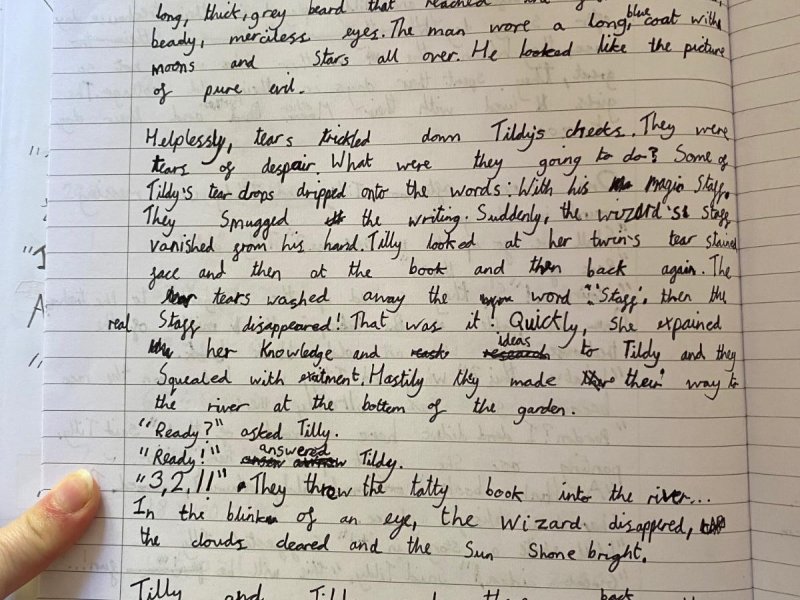 long, thick, grey beard that reached
beady, merciless eyes. The man wore a long, blue coat with
moons and stars all over. He looked like the picture
of pure evil.
Helplessly, tears trickled down Tildy's cheeks. They were
tears of despair. What were they going to do? Some of
Tildy's tear drops dripped onto the words: With his magic Staff.
They Smugged the writing. Suddenly, the wizard's staff
vanished from his hand. Tilly looked at her twin's tear stained
face and then at the book and then back again. The
tears washed away the word "Staff", then the
real Staff disappeared! That was it! Quickly, She expained
her Knowledge and ideas to Tildy and they
Squealed with exitment. Hastily they made their way to
the river at the bottom of the garden.
"Ready?" asked Tilly.
"Ready!" answered Tildy.
"3, 2, 1!" They threw the tatty book into the river...
In the blink of an eye, the Wizard disappered,
the clouds cleared and the Sun Shone bright.
Tilly and back